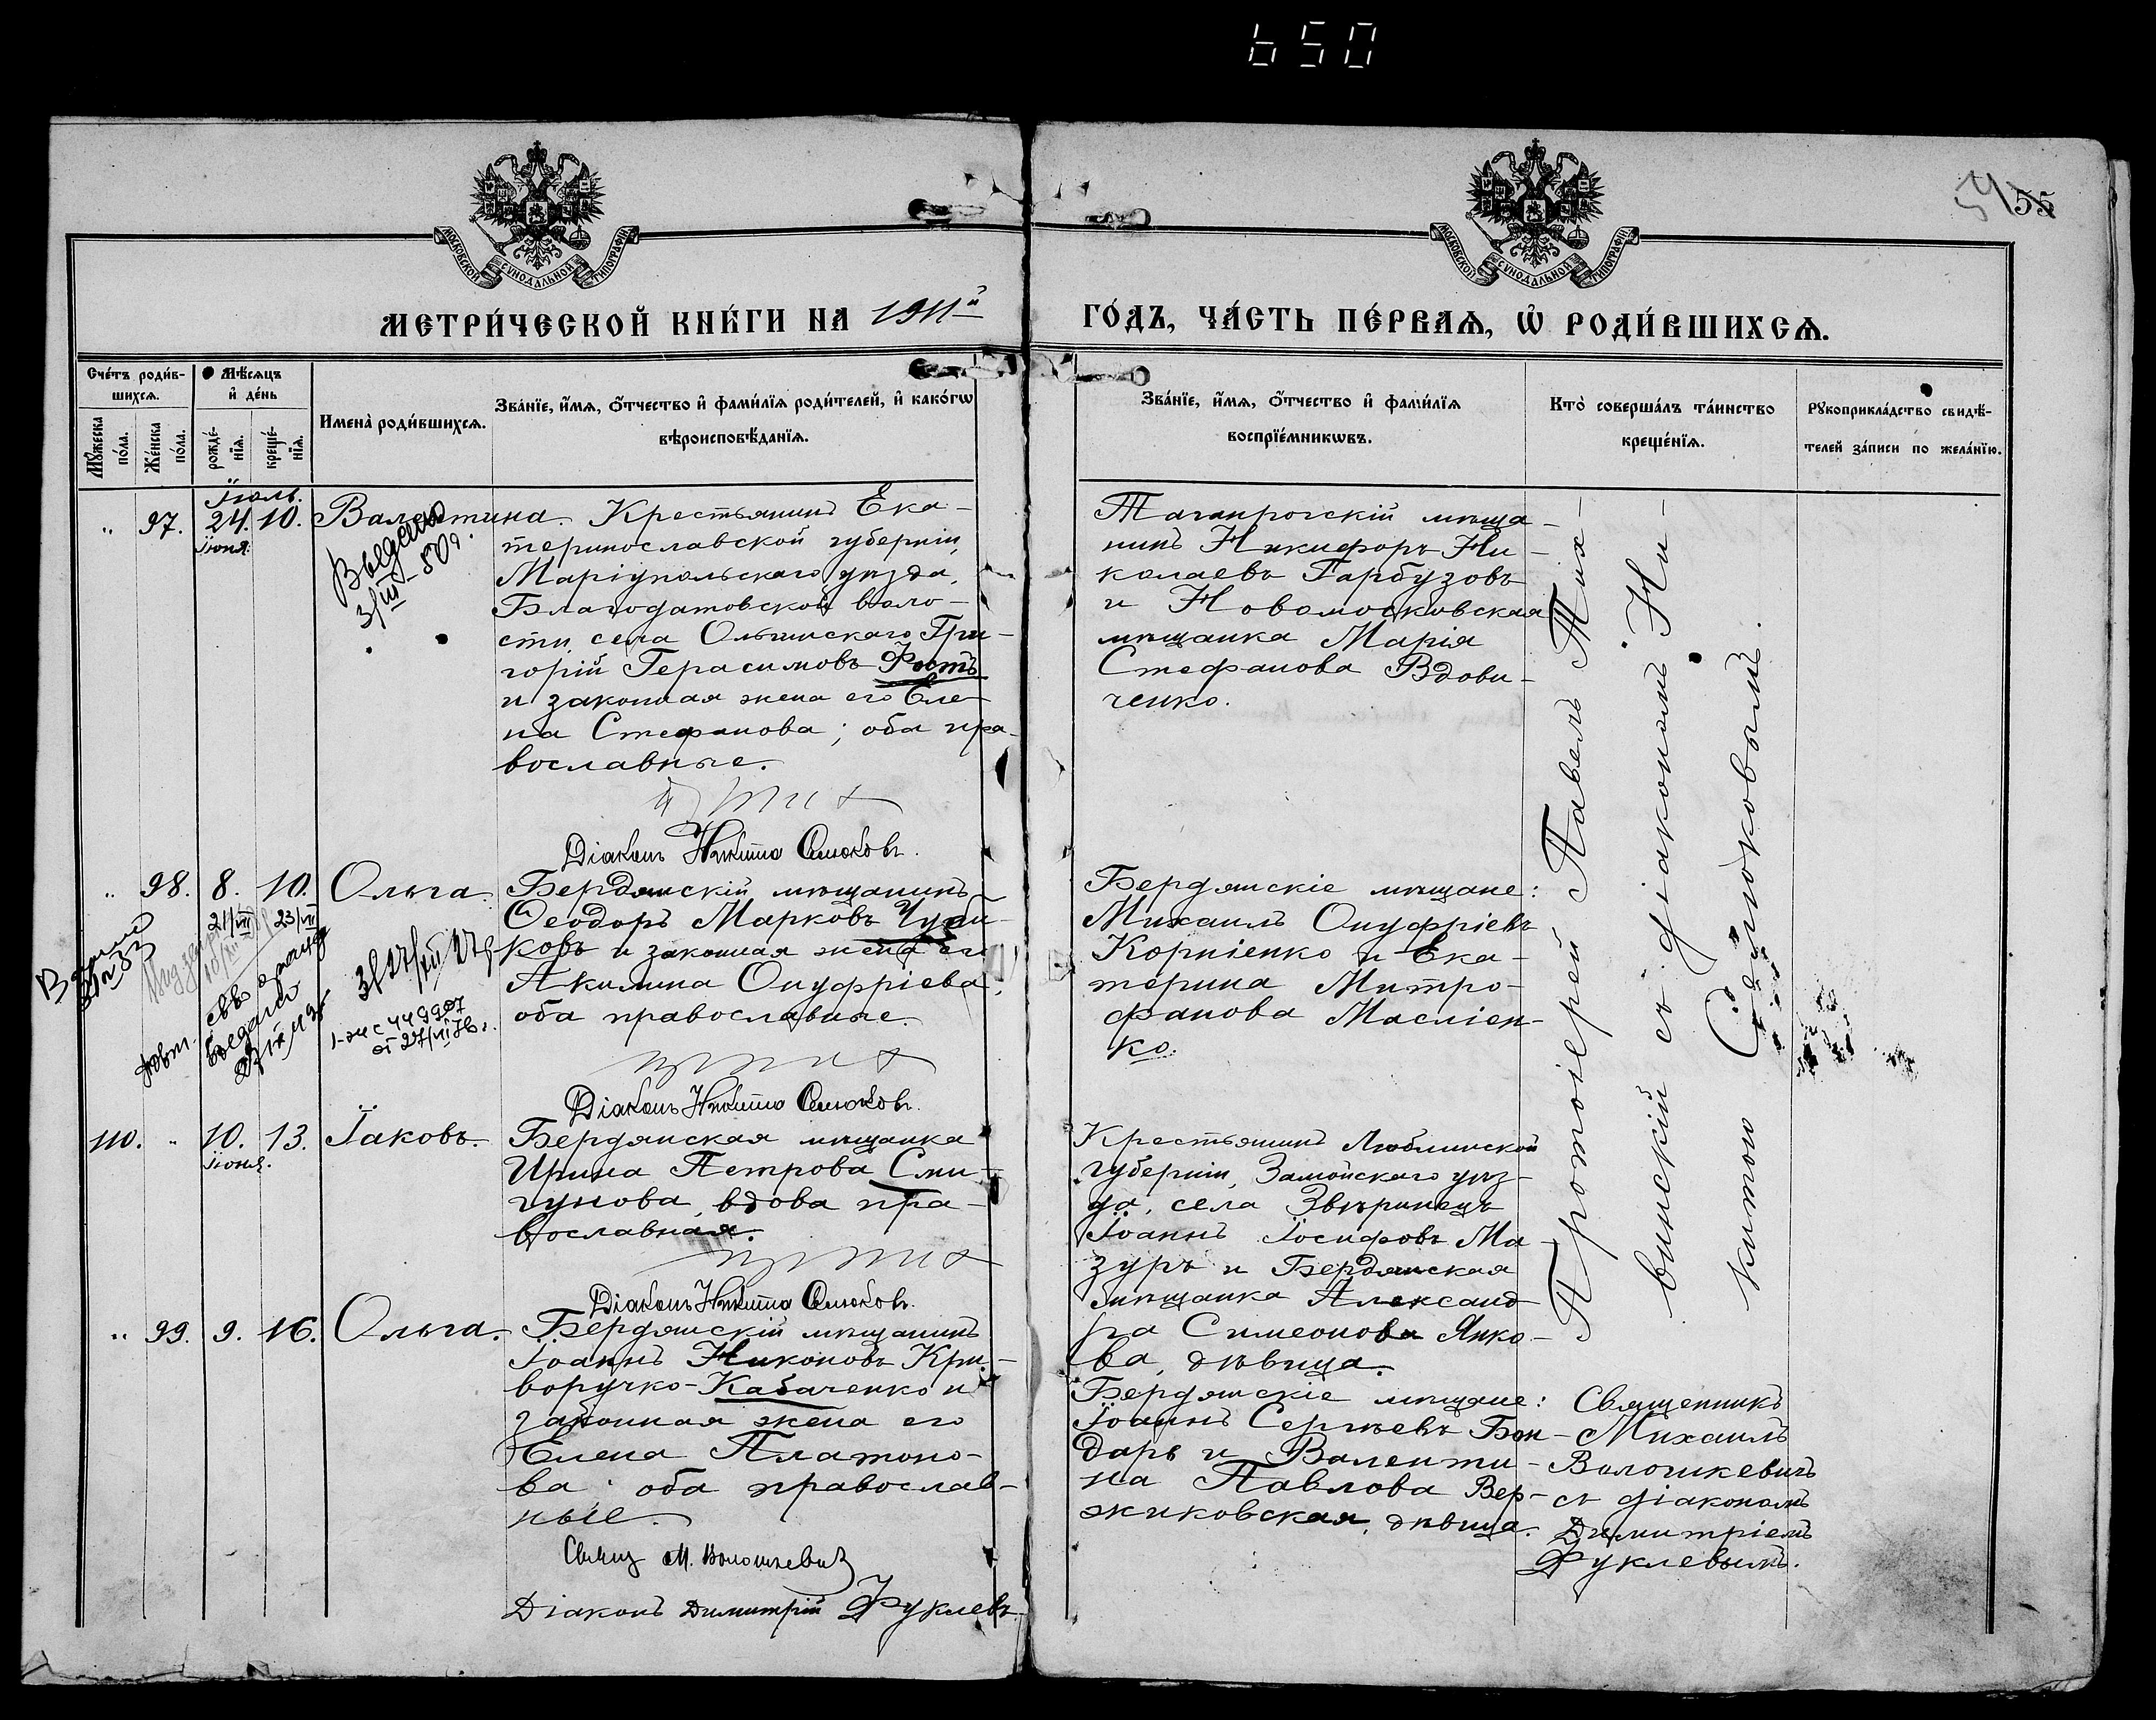 650
МОСКОВСКОЙ СУНОДАЛЬНОЙ ТИПОГРАФІИ
МОСКОВСКОЙ СУНОДАЛЬНОЙ ТИПОГРАФІИ
55
МЕТРИ́ЧЕСКОЙ КНИ́ГИ НА 1911й
ГО́ДЪ, ЧА́СТЬ ПЕ́РВАѦ, Ѡ҆ РОДИ́ВШИХСѦ.
Сче́тъ роди́в-
шихсѧ.
Мꙋ́жеска
по́ла.
Же́нска
по́ла.
Мѣ́сѧцъ
и҆ де́нь
рожде́-
нїѧ.
креще́-
нїѧ.
Имена̀ роди́вшихсѧ.
Зва́нїе, и҆́мѧ, ѻ҆́тчество и҆ фами́лїѧ роди́телей, и҆ како́гѡ
вѣроисповѣ́данїѧ.
Зва́нїе, и҆́мѧ, ѻ҆́тчество и҆ фами́лїѧ
воспрїе́мникѡвъ.
Кто̀ соверша́лъ та́инство
креще́нїѧ.
Рꙋкоприкла́дство свидѣ́-
телей за́писи по жела́нїю.
Іюль.
„ 97. 24. 10. Валентина.
Іюня.
Выдана
3/III - 50 г.
Крестьянинъ Ека-
теринославской губерніи,
Маріупольскаго уѣзда,
Благодатовской воло-
сти, села Ольгинскаго Гри-
горій Герасимовъ Фостъ
и законная жена его Еле-
на Стефанова; оба пра-
вославные.
Діаконъ Никита Сѣдюковъ.
Таганрогскій мѣща-
нинъ Никифоръ Ни-
колаевъ Гарбузовъ
и Новомосковская
мѣщанка Марія
Стефанова Вдови-
ченко.
Протоіерей Павелъ Тих-
винскій съ діакономъ Ни-
китою
„ 98. 8. 10. Ольга.
21/VII 23/VII
Бердянскій мѣщанинъ
Ѳеодоръ Марковъ Чуби-
ковъ и законная жена его
Акилина Онуфріева,
оба православные.
Діаконъ Никита Сѣдюковъ.
Бердянскіе мѣщане:
Михаилъ Онуфріевъ
Корніенко и Ека-
терина Митро-
фанова Масліен-
ко.
110. „ 10. 13. Іаковъ.
Іюня.
Бердянская мѣщанка
Ирина Петрова Сми-
гунова, вдова, пра-
вославная.
Діаконъ Никита Сѣдюковъ.
Крестьянинъ Люблинской
губерніи, Замойскаго уѣз-
да, села Звѣринецъ
Іоаннъ Іосифовъ Ма-
зуръ и Бердянская
мѣщанка Александ-
ра Симеонова Янко-
ва, дѣвица.
„ 99. 9. 16. Ольга.
Бердянскій мѣщанинъ
Іоаннъ Никоновъ Кри-
воручко-Кабаченко и
законная жена его
Елена Платоно-
ва; оба православ-
ные.
Свящ М. Волошкевичъ
Діаконъ Димитрій Фуклевъ
Бердянскіе мѣщане:
Іоаннъ Сергѣевъ Бон-
дарь и Валенти-
на Павлова Вер-
жиковская, дѣвица.
Священникъ
Михаилъ
Волошкевичъ
съ діакономъ
Димитріемъ
Фуклевымъ.